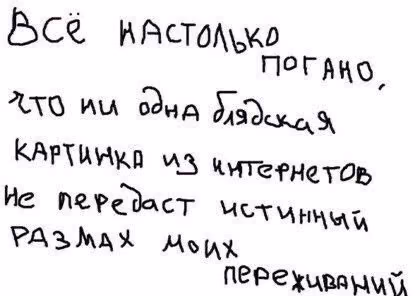 ВСЁ НАСТОЛЬКО
ПОГАНО,
что ни одна блядская
картинка из интернетов
не передаст истинный
размах моих
переживаний